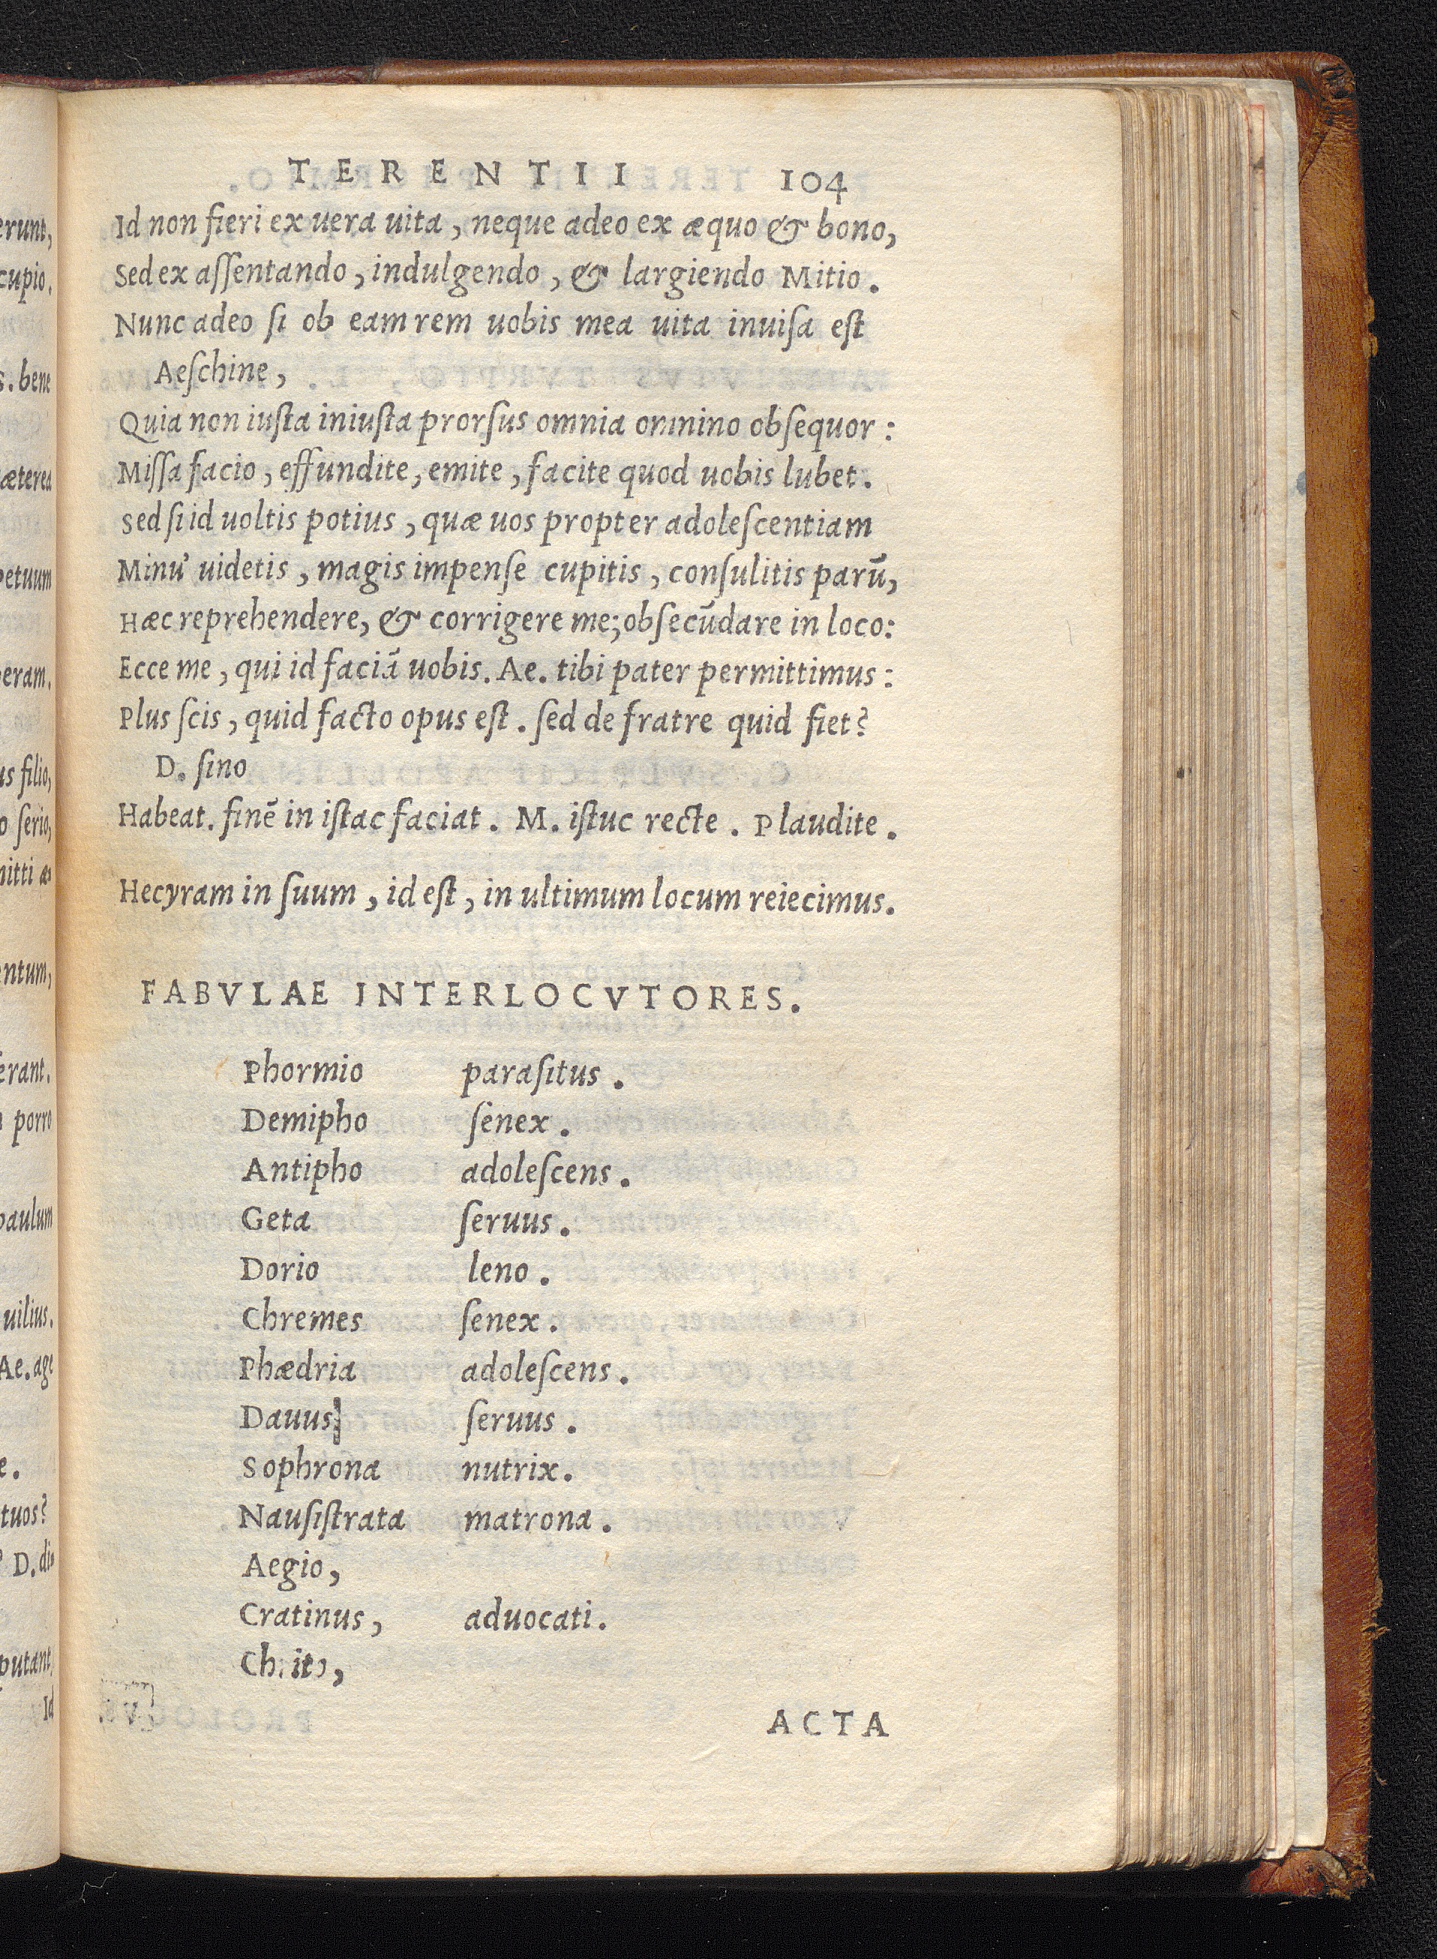 TERENTII 104
Id non fieri ex uera uita, neque adeo ex æquo & bono,
Sed ex aſſentando, indulgendo, & largiendo Mitio.
Nunc adeo ſi ob eam rem uobis mea uita inuiſa eſt
Aeſchine,
Quia non iuſta iniuſta prorſus omnia omnino obſequor:
Miſſa facio, effundite, emite, facite quod uobis lubet.
Sed ſi id uoltis potius, quæ uos propter adoleſcentiam
Minu' uidetis, magis impenſe cupitis, conſulitis parū,
Hæc reprehendere, & corrigere me; obſecūdare in loco:
Ecce me, qui id faciā uobis. Ae. tibi pater permittimus:
Plus ſcis, quid facto opus eſt. ſed de fratre quid fiet?
D. ſino
Habeat. finē in iſtac faciat. M. iſtuc recte. Plaudite.
Hecyram in ſuum, id eſt, in ultimum locum reiecimus.
FABVLAE INTERLOCVTORES.
Phormio paraſitus.
Demipho ſenex.
Antipho adoleſcens.
Geta ſeruus.
Dorio leno.
Chremes ſenex.
Phædria adoleſcens.
Dauus ſeruus.
Sophrona nutrix.
Nauſiſtrata matrona.
Aegio,
Cratinus, aduocati.
ACTA
erunt,
cupio.
s. bene
æterea
petuum
peram.
us filio,
o ſerio,
mitti æ
entum,
ferant.
porro
paulum
uilius.
Ae. age
e.
tuos?
D. di
putant,
Id